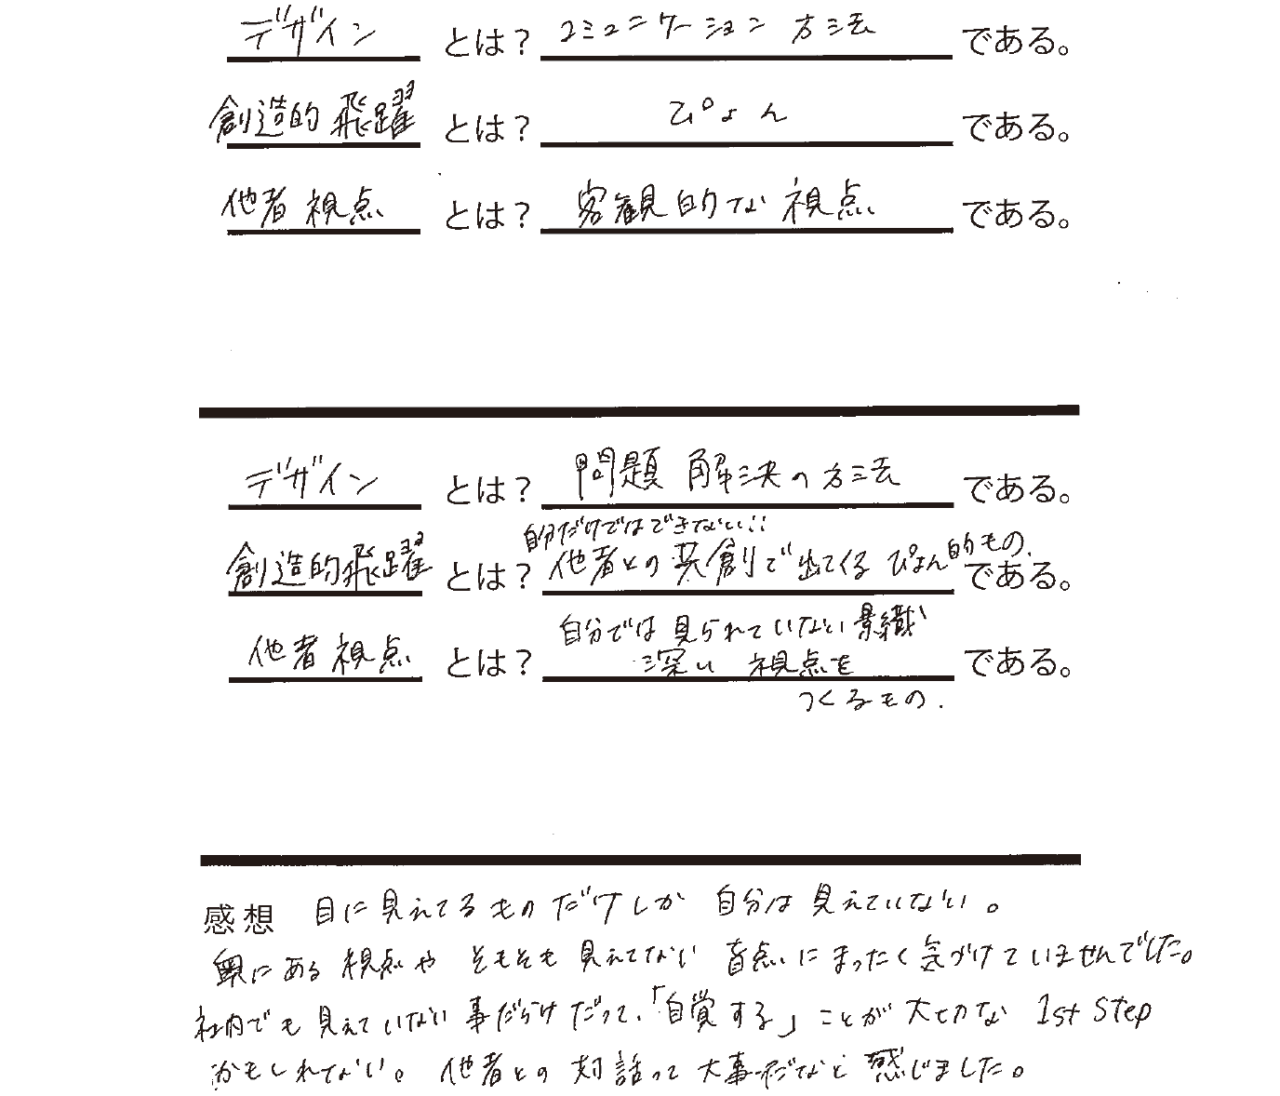 デザイン とは？ コミュニケーション 方法 である。
創造的 飛躍 とは？ ぴょん である。
他者 視点 とは？ 客観的な 視点 である。
デザイン とは？ 問題 解決の方法 である。
自分だけではできない!!
創造的飛躍 とは？ 他者との共創で出てくる ぴょん的もの. である。
自分では見られていない
他者 視点 とは？ 深い 視点を である。
つくるもの.
感想 目に見えてるものだけしか 自分は見えていない。
奥にある視点や そもそも見えてない 盲点にまったく気づけていませんでした。
社内でも見えていない事だらけだって、「自覚する」ことが 大切な 1st Step
かもしれない。他者との対話って大事だなと感じました。